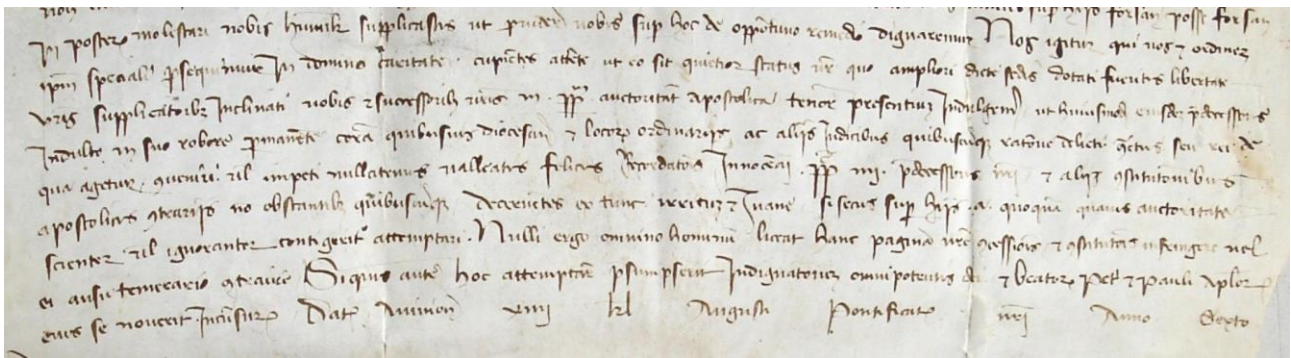 non sup hijs forsan posse forsan
In posterum molestari nobis humilit supplicastis ut providere vobis sup hoc de opportuno remedio dignaremur Nos igitur qui vos et ordinem
ipm speciali psequimur In domino caritate cupientes attente ut eo sit quietior status vr quo ampliori dicte sedis dotati fueritis libertate
vris supplicationibus Inclinati vobis et successoribus vris in ppm auctoritate apostolica tenore presentium Indulgem ut huiusmodi eiusdem predecessoris
Indulto in suo robore permanente coram quibusuis diocesanis et locorum ordinarijs ac alijs Iudicibus quibuscumque ratione delicti contractus seu rei de
qua agetur conueniri uel impeti nullatenus valeatis felicis Recordationis Innocencii pp iiij predecessoris nri et alijs constitutionibus
apostolicis contrarijs non obstantibus quibuscumque Decernentes ex tunc irritum et Inane si secus super hijs a quoquam quauis auctoritate
scienter uel ignoranter contigerit attemptari Nulli ergo omnino hominum liceat hanc paginam nre concessionis et constitutionis infringere uel
ei ausu temerario contraire Siquis autem hoc attemptare presumpserit Indignationem omnipotentis dei et beatorum Petri et Pauli aplorum
eius se nouerit Incursurum Dat Auinion xiiij kl Augusti Pontificatus nri Anno Sexto